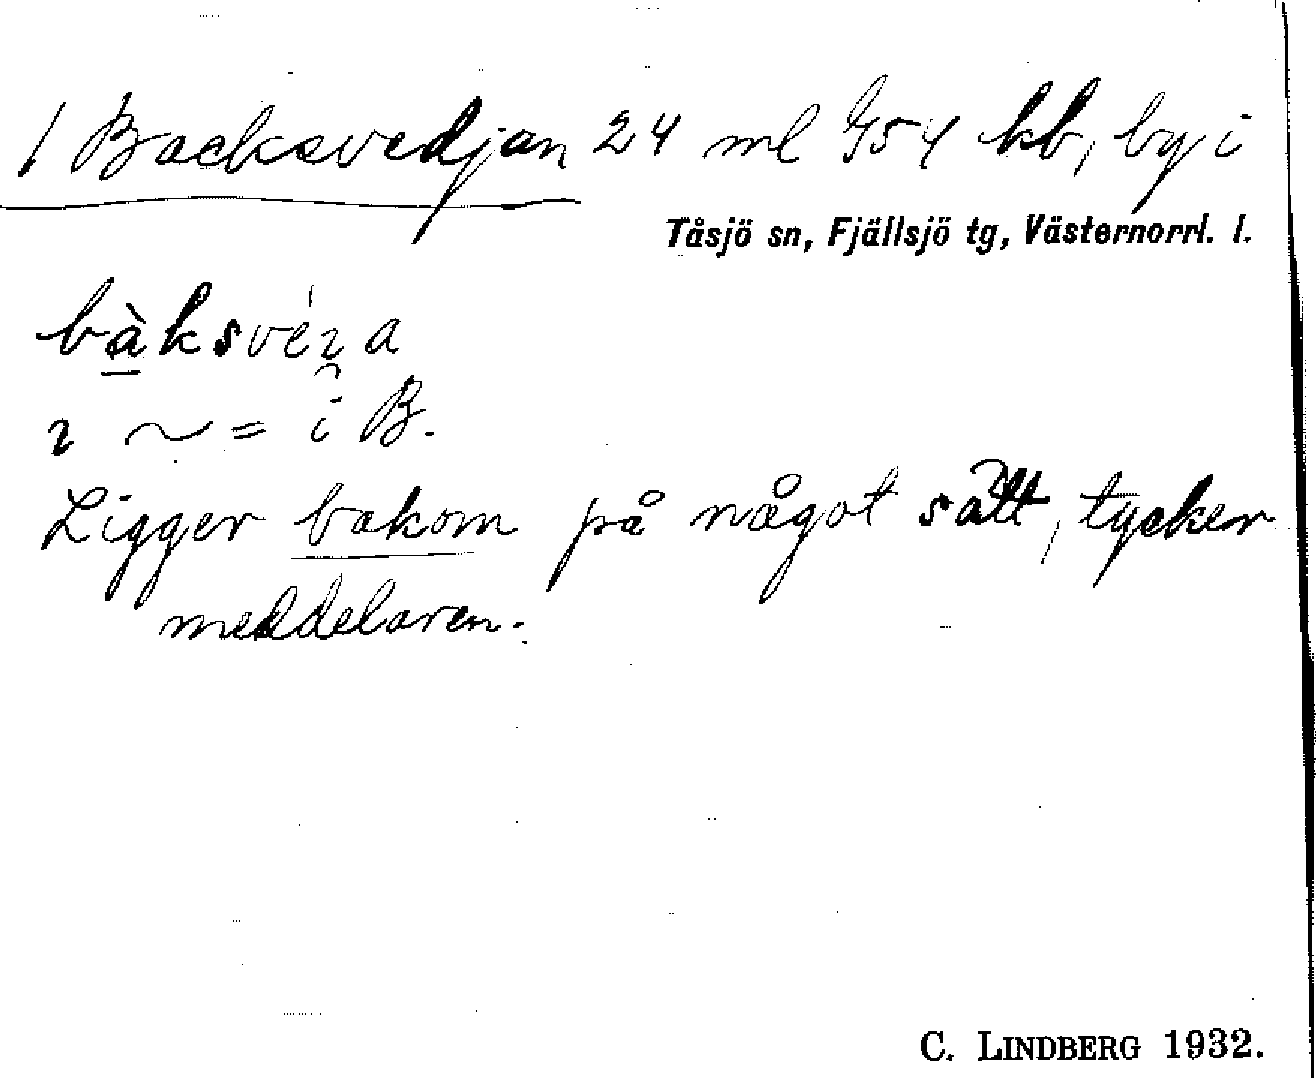 1 Backsvedjan 24 ml 954 kb, by i
Tåsjö sn, Fjällsjö tg, Västernorrl. l.
bàksvéɿ̯a
ɿ ~ = i B.
Ligger bakom på något sätt, tycker
meddelaren.
C. LINDBERG 1932.